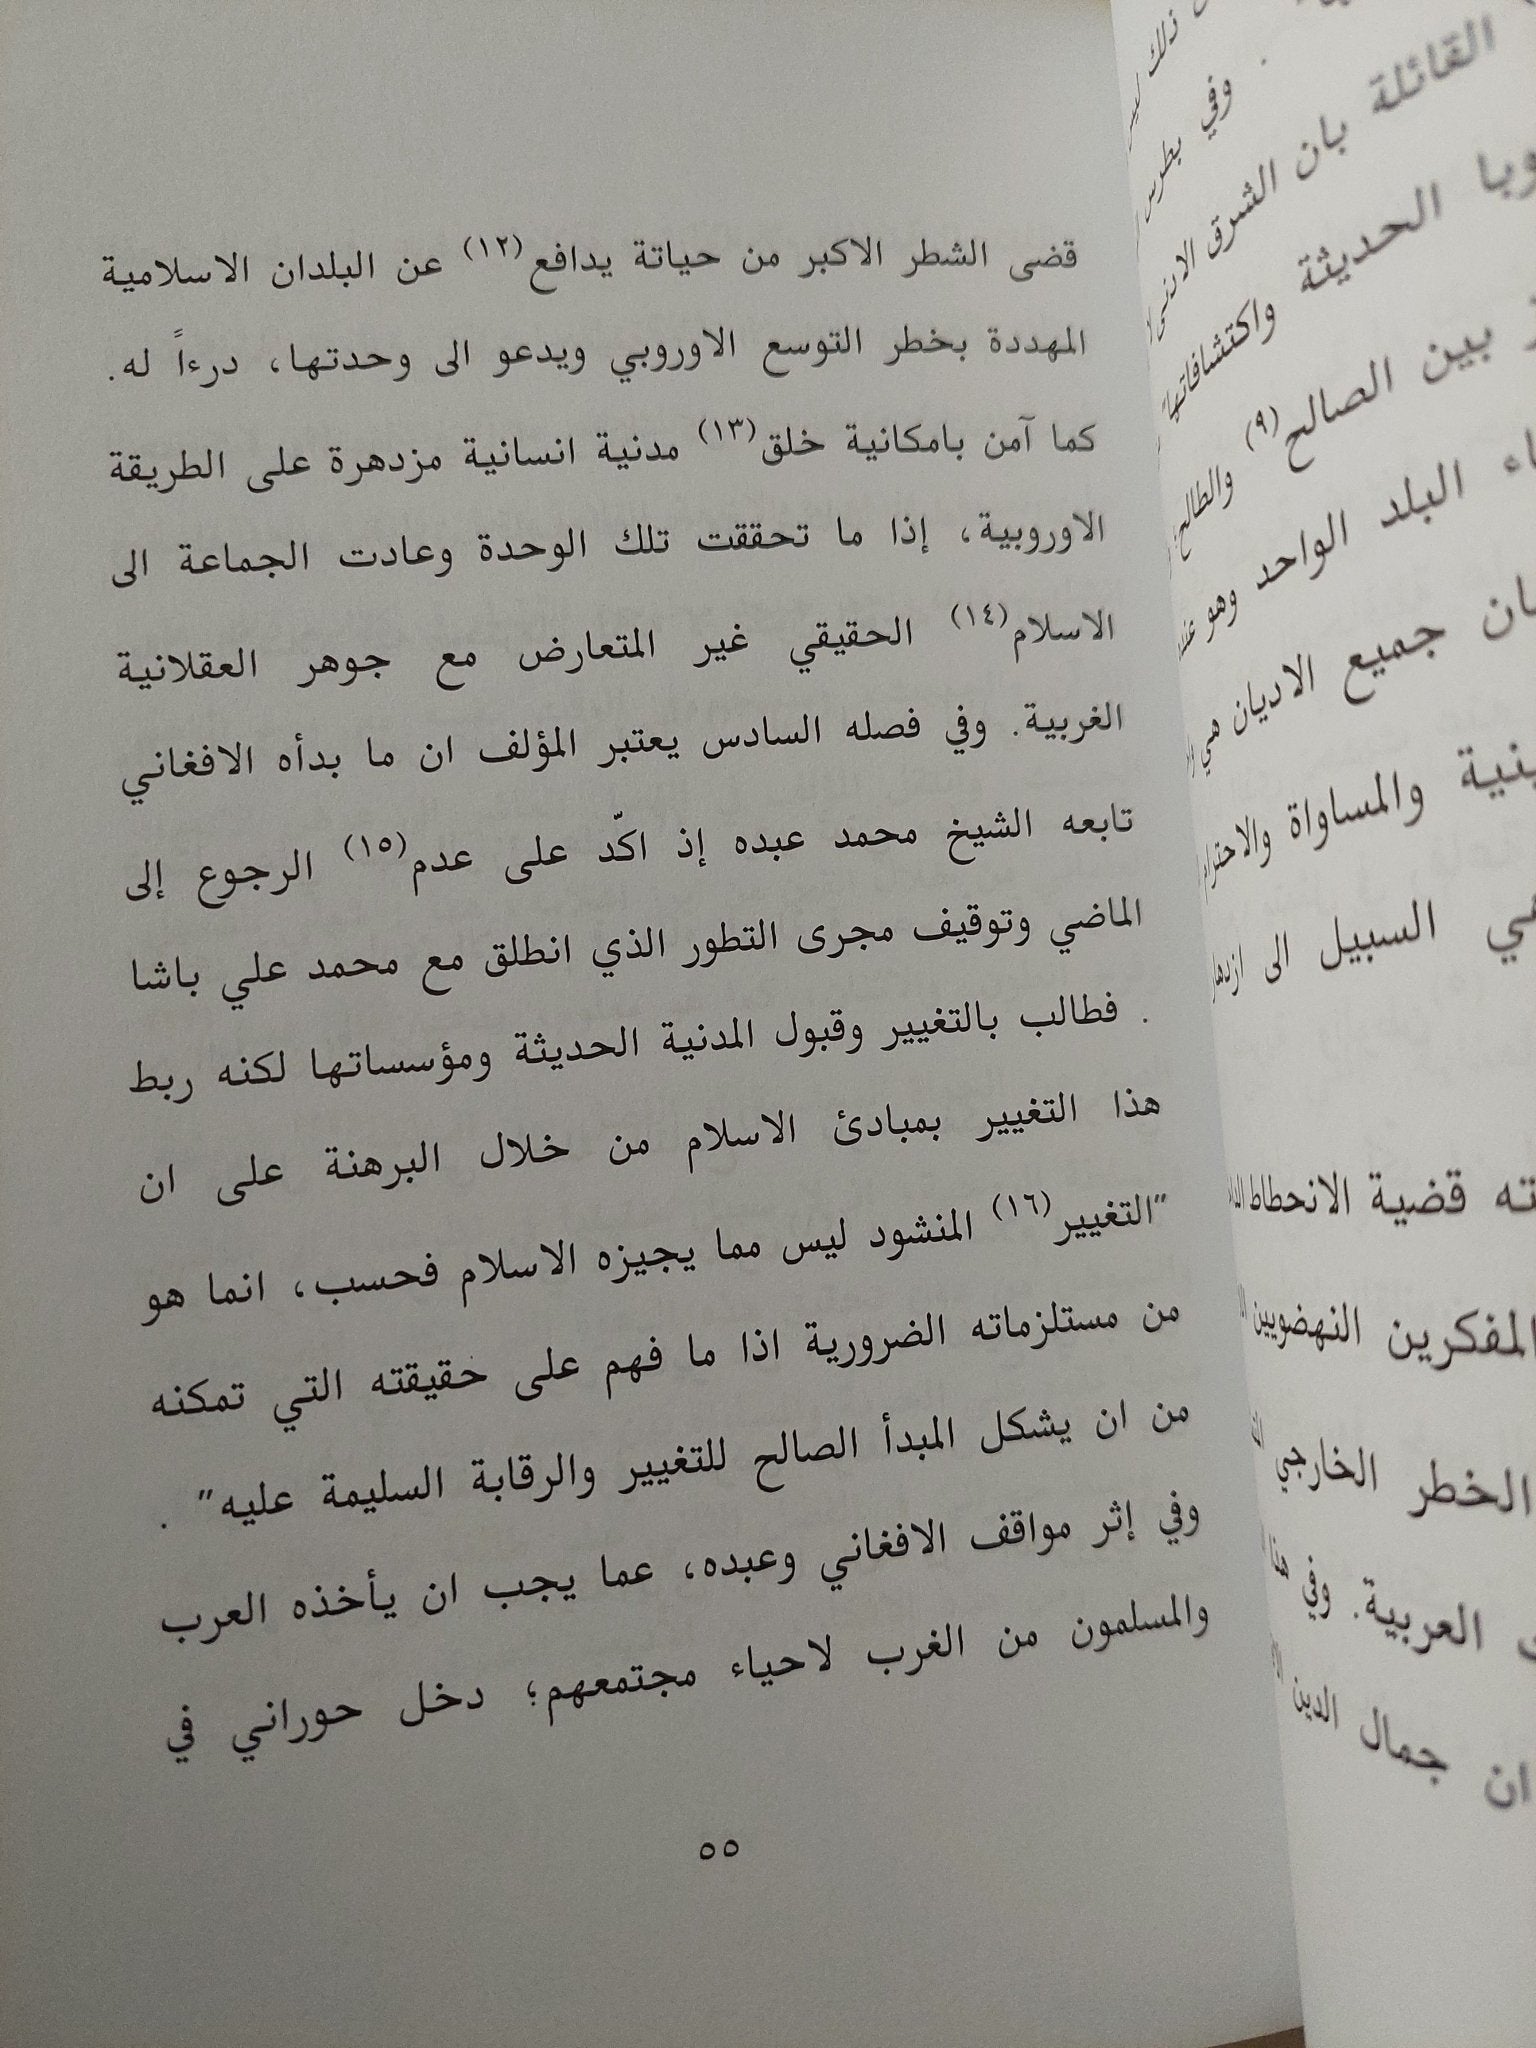 قضى الشطر الاكبر من حياتة يدافع(١٢) عن البلدان الاسلامية
المهددة بخطر التوسع الاوروبي ويدعو الى وحدتها، درءاً له.
كما آمن بامكانية خلق(١٣) مدنية انسانية مزدهرة على الطريقة
الاوروبية، إذا ما تحققت تلك الوحدة وعادت الجماعة الى
الاسلام(١٤) الحقيقي غير المتعارض مع جوهر العقلانية
الغربية. وفي فصله السادس يعتبر المؤلف ان ما بدأه الافغاني
تابعه الشيخ محمد عبده إذ اكّد على عدم(١٥) الرجوع إلى
الماضي وتوقيف مجرى التطور الذي انطلق مع محمد علي باشا
. فطالب بالتغيير وقبول المدنية الحديثة ومؤسساتها لكنه ربط
هذا التغيير بمبادئ الاسلام من خلال البرهنة على ان
"التغيير(١٦) المنشود ليس مما يجيزه الاسلام فحسب، انما هو
من مستلزماته الضرورية اذا ما فهم على حقيقته التي تمكنه
من ان يشكل المبدأ الصالح للتغيير والرقابة السليمة عليه" .
وفي إثر مواقف الافغاني وعبده، عما يجب ان يأخذه العرب
والمسلمون من الغرب لاحياء مجتمعهم؛ دخل حوراني في
٥٥
ذلك
. وفي بطرس
القائلة بان الشرق الادنى
الحديثة واكتشافاتها
بين الصالح(٩) والطالح
البلد الواحد وهو
جميع الاديان هي
والمساواة والاحترام
السبيل الى
قضية الانحطاط
المفكرين النهضويين
الخطر الخارجي
العربية. وفي هذا
ان جمال الدين